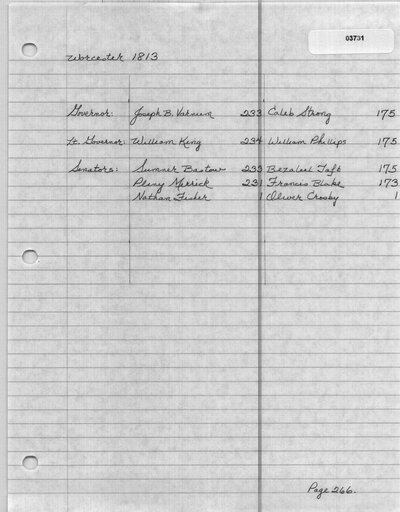 03731
Worcester 1813
Governor: Joseph B. Varnum 233 Caleb Strong 175
Lt. Governor: William King 234 William Phillips 175
Senators: Sumner Bastow 233 Bezaleel Taft 175
Pliny Merrick 231 Francis Blake 173
Nathan Fisher 1 Oliver Crosby 1
Page 266.